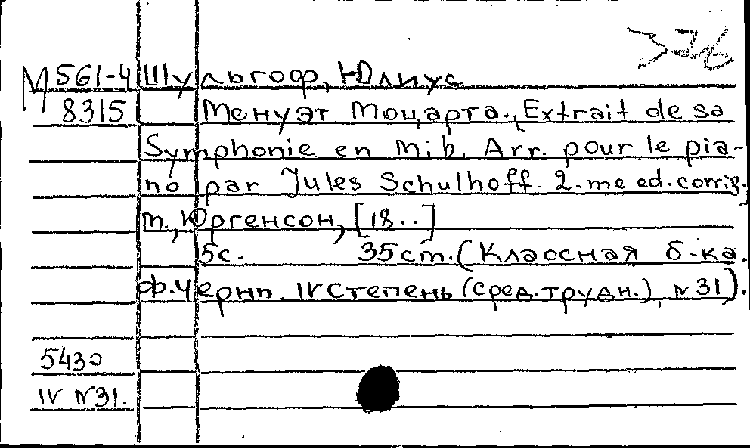 376
М 561-4 Шульгоф, Юлиус
8315 Менуэт Моцарта. Extrait de sa
Symphonie en Mi b. Arr. pour le pia-
no par Jules Schulhoff. 2-me ed. corrig.
М., Юргенсон, [18..]
5с. 35 cm. (Классная б-ка.
Ф. Черни. IV степень (сред. трудн.) N 31).
5430
IV N 31.